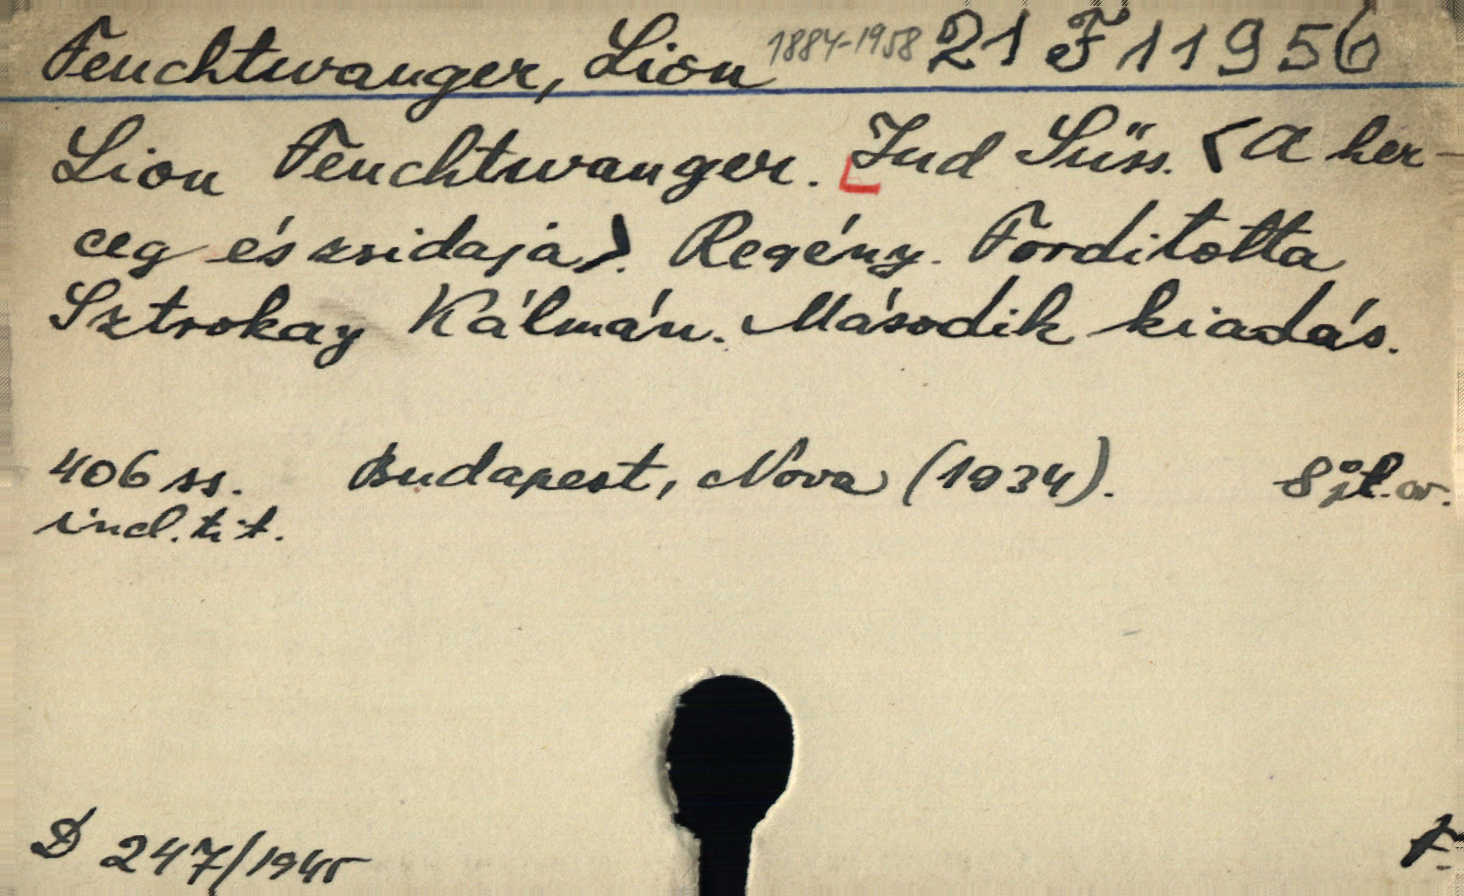 Feuchtwanger, Lion 1884-1958 21 F 11956
Lion Feuchtwanger. Jud Süss. <A her-
ceg és zsidaja>. Regény. Forditotta
Sztrokay Kálmán. Második kiadás.
406 ss. Budapest, Nova (1934). 8°
incl. tit.
D 247/1945